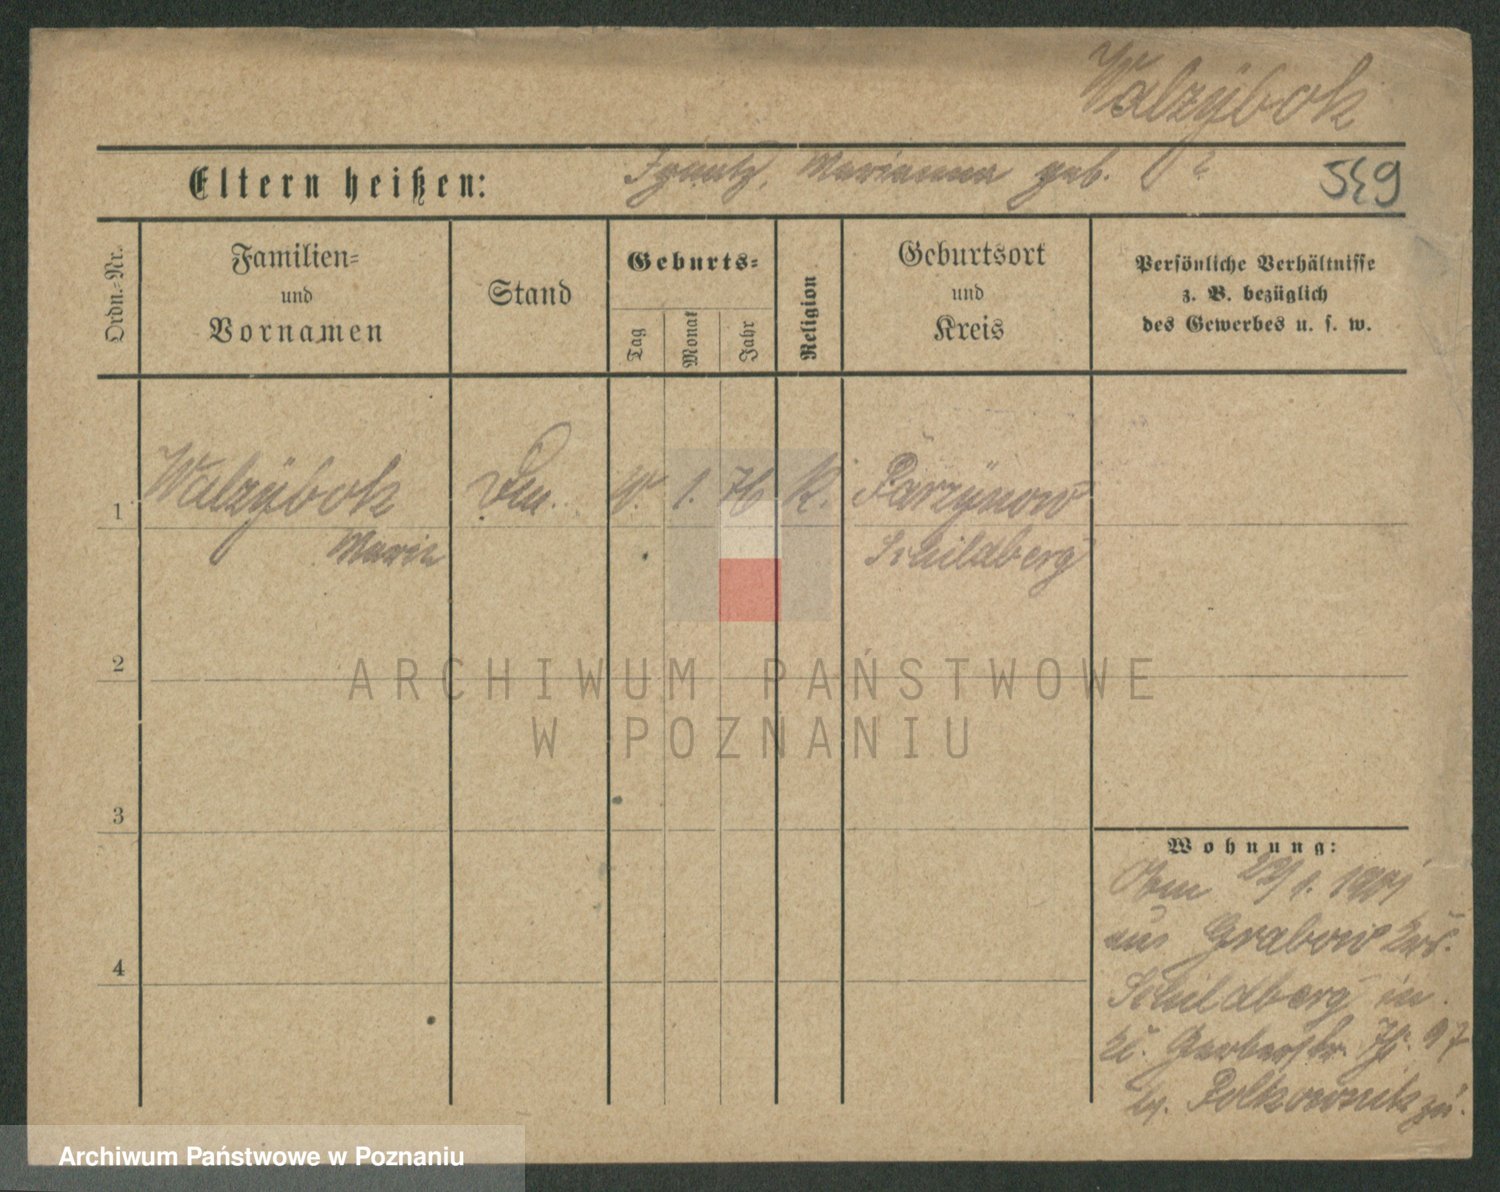 Walzÿbok
Eltern heißen: Ignatz, Marianna geb. ?
549
Ordn.-Nr.
Familien-
und
Vornamen
Stand
Geburts-
Tag
Monat
Jahr
Religion
Geburtsort
und
Kreis
Persönliche Verhältnisse
z. B. bezüglich
des Gewerbes u. s. w.
1 Walzÿbok 1. 76 K. Parzÿnow
Marie Schildberg
2
3
4
Wohnung:
29/1. 1901
aus Grabow Krs.
Schildberg in
Kl. Gerberstr. 7
Polkownik zu.
ARCHIWUM PAŃSTWOWE
W POZNANIU
Archiwum Państwowe w Poznaniu